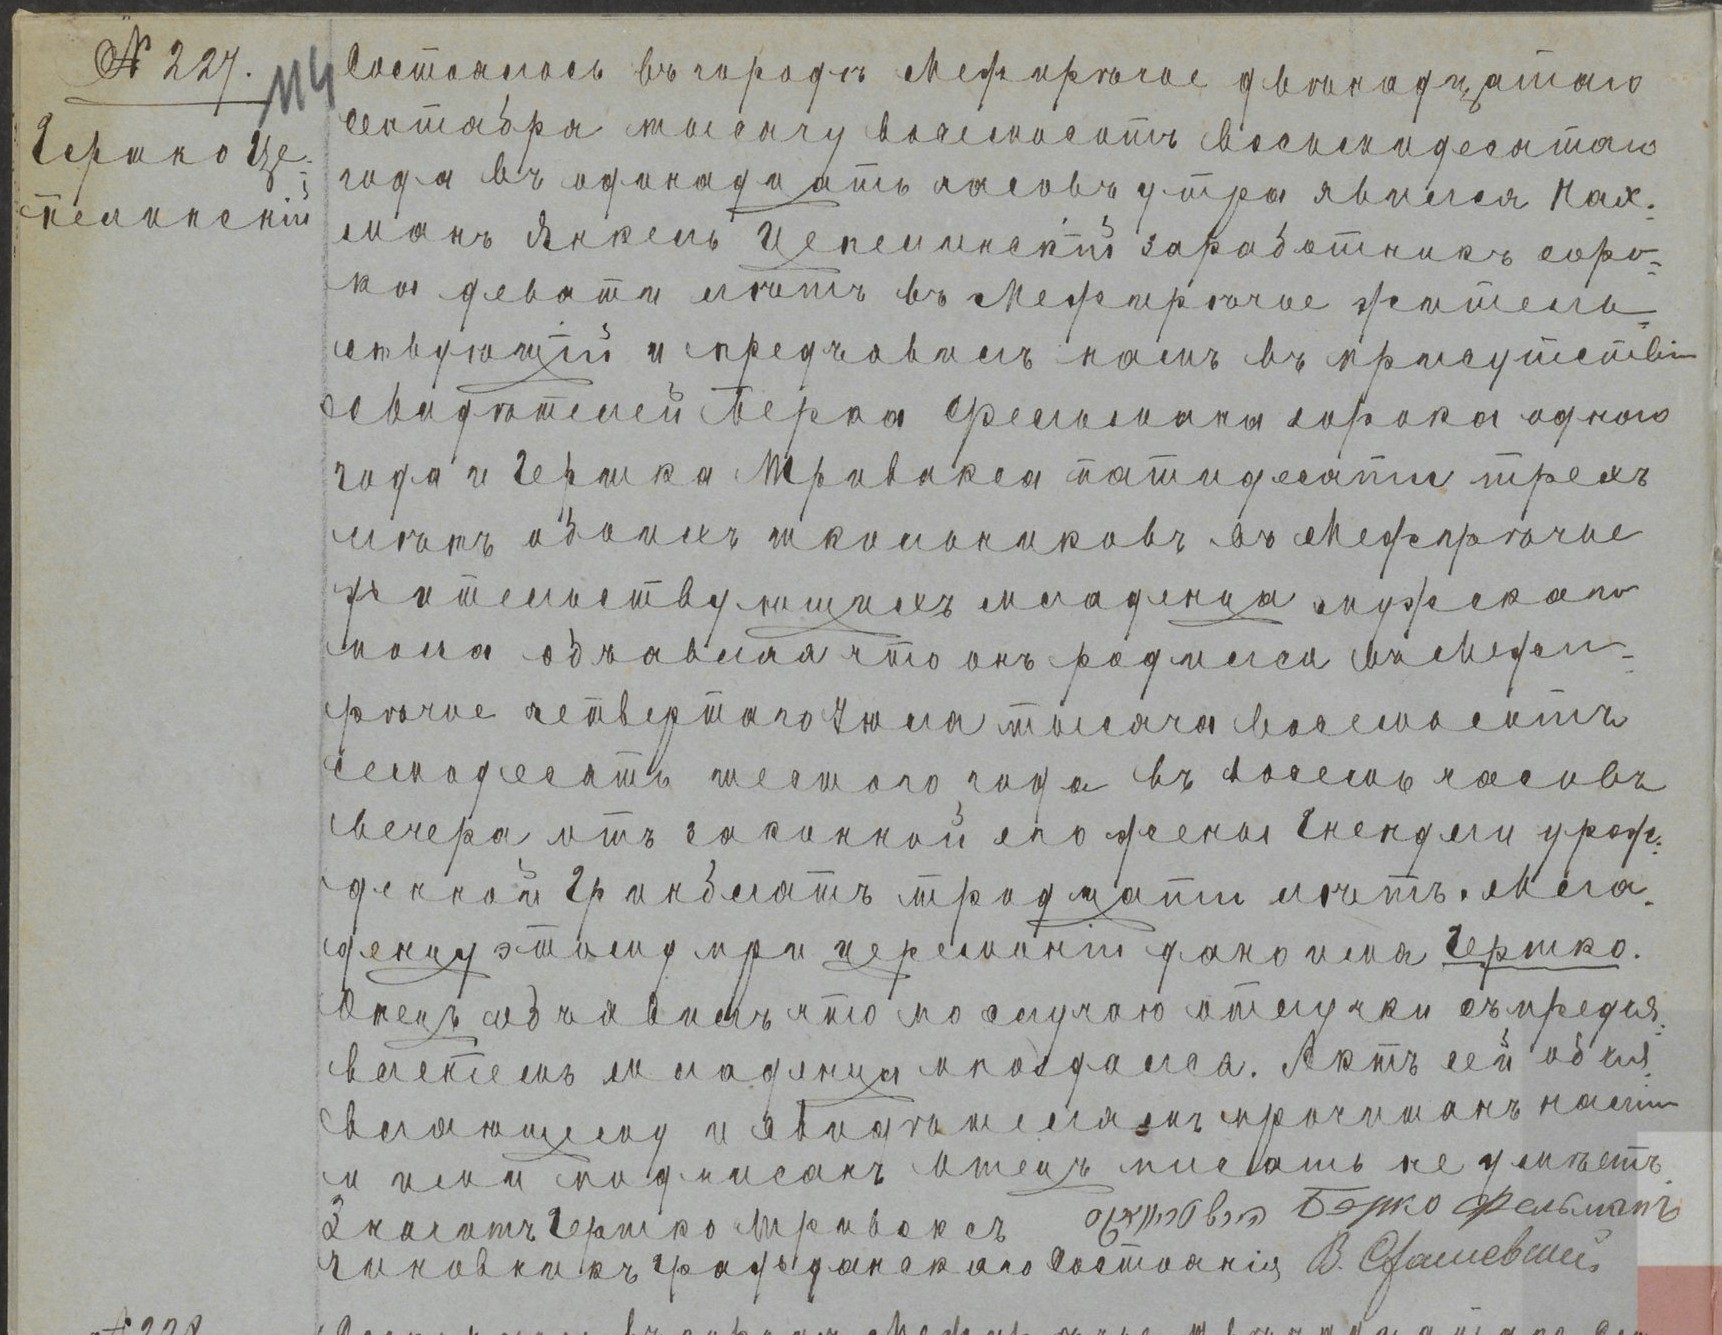 № 227.
114
Гершко Це-
пелинскій
Состоялось въ городѣ Межирѣчье двѣнадцатаго
Сентября тысячу восемьсотъ восьмидесятаго
года въ одинадцать часовъ утра явился Нах-
манъ Янкель Цепелинскій заработникъ соро-
ка девяти лѣтъ въ Межирѣчье житель-
ствующій и предъявилъ намъ въ присутствіи
свидѣтелей Берка Фельдмана сорока одного
года и Гершка Тривакса пятидесяти трехъ
лѣтъ обоихъ школьниковъ въ Межирѣчье
жительствующихъ младенца мужскаго
пола объявляя что онъ родился въ Межи-
рѣчье четвертаго Іюля тысяча восемьсотъ
семьдесятъ шестого года въ восемь часовъ
вечера отъ законной его жены Гнендли урож-
денной Гринблатъ тридцати лѣтъ. Мла-
денцу этому при церемоніи дано имя Гершко.
Отецъ объявилъ что по случаю отлучки съ предъя-
вленіемъ младенца опоздался. Актъ сей объя-
вляющему и свидѣтелямъ прочитанъ нами
и ими подписанъ Отецъ писать не умѣетъ
Значитъ Гершко Триваксъ Берко Фельманъ
Чиновникъ Гражданскаго Состоянія В.
№ 228